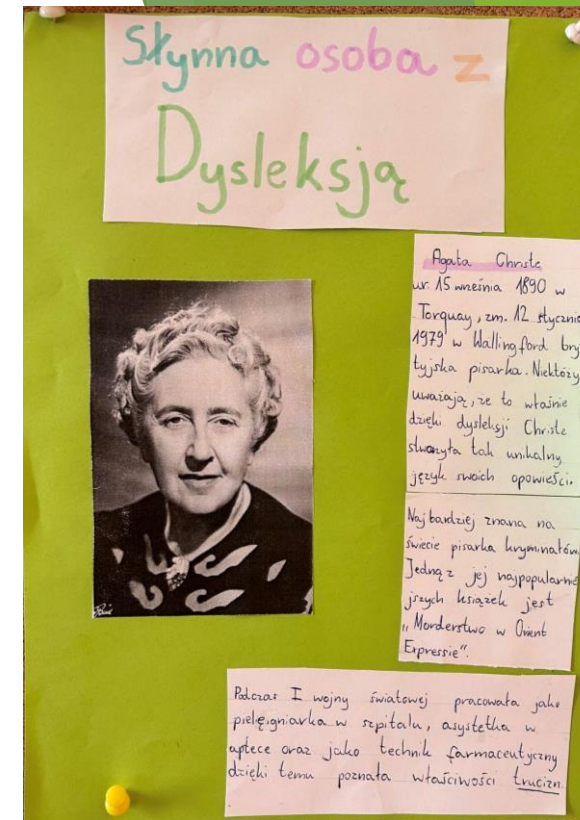 Słynna osoba z
Dysleksją
Agata Christe
ur. 15 września 1890 w
Torquay, zm. 12 stycznia
1979 w Wallingford bry
tyjska pisarka. Niektózy
uważają, że to właśnie
dzięki dysleksji Christe
stworzyła tak unikalny
język swoich opowieści.
Najbardziej znana na
świecie pisarka kryminałów.
Jedną z jej najpopularnie
jszych książek jest
„Morderstwo w Orient
Expressie".
Podczas I wojny światowej pracowała jako
pielęgniarka w szpitalu, asystetka w
aptece oraz jako technik farmaceutyczny
dzięki temu poznała właściwości trucizn.